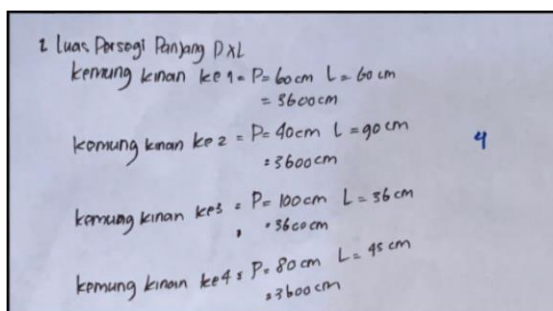 1 Luas Persegi Panjang P x L
kemung kinan ke 1 = P = 60 cm L = 60 cm
= 3600 cm
kemung kinan ke 2 = P = 40 cm L = 90 cm
= 3600 cm
4
kemung kinan ke3 = P = 100 cm L = 36 cm
= 3600 cm
kemung kinan ke4 = P = 80 cm L = 45 cm
= 3600 cm